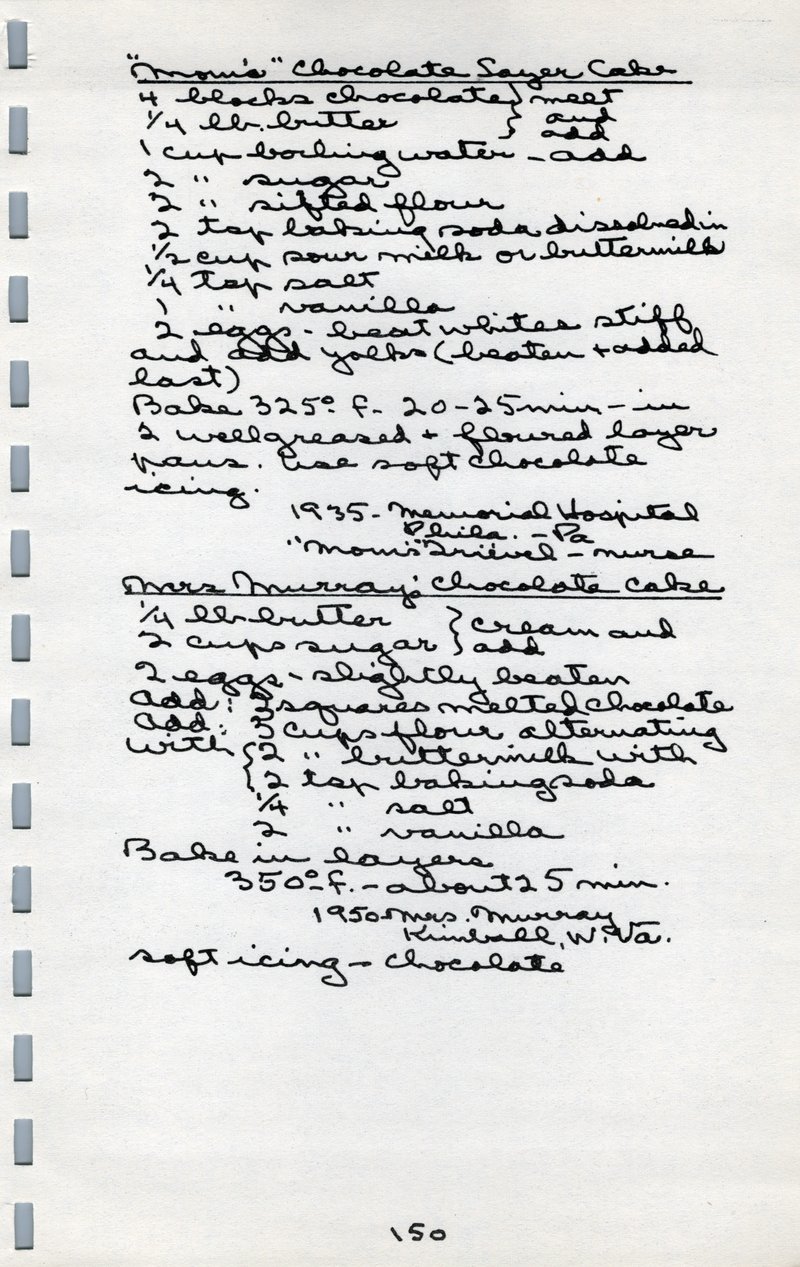 "Mom's" Chocolate Layer Cake
4 blocks chocolate } melt
1/4 lb. butter } and add
1 cup boiling water - add
2 " sugar
2 " sifted flour
2 tsp baking soda dissolved in
1/2 cup sour milk or buttermilk
1/4 tsp salt
1 " vanilla
2 eggs - beat whites stiff
and add yolks (beaten + added
last)
Bake 325° f. 20-25 min - in
2 well greased + floured layer
pans. Use soft chocolate
icing.
1935 - Memorial Hospital
Phila. - Pa
"Mom's" - nurse
Mrs Murray's Chocolate Cake
1/4 lb butter } cream and
2 cups sugar } add
2 eggs - slightly beaten
add: squares melted chocolate
add: 3 cups flour alternating
with { 2 " buttermilk with
{ 2 tsp baking soda
1/4 " salt
2 " vanilla
Bake in layers
350° f. - about 25 min.
1950 Mrs. Murray
Kimball, W. Va.
soft icing - chocolate
150